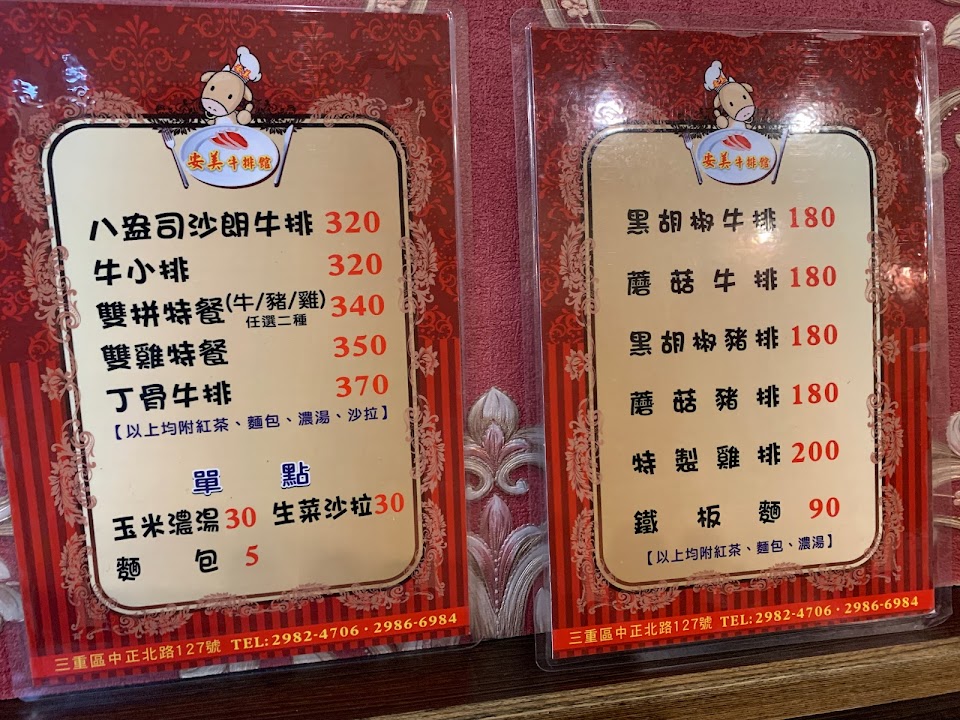 安美牛排館
八盎司沙朗牛排 320
牛小排 320
雙拼特餐(牛/豬/雞)任選二種 340
雙雞特餐 350
丁骨牛排 370
【以上均附紅茶、麵包、濃湯、沙拉】
單點
玉米濃湯 30 生菜沙拉 30
麵包 5
三重區中正北路127號 TEL:2982-4706·2986-6984
安美牛排館
黑胡椒牛排 180
蘑菇牛排 180
黑胡椒豬排 180
蘑菇豬排 180
特製雞排 200
鐵板麵 90
【以上均附紅茶、麵包、濃湯】
三重區中正北路127號 TEL:2982-4706·2986-6984